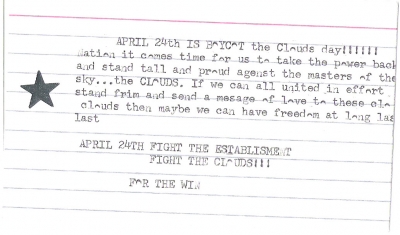 APRIL 24th IS B^YC^T the Cl^uds day!!!!!!
Nati^n it c^mes time f^r us to take the p^wer back
and stand tall and pr^ud agenst the masters ^f the
sky...the CL^UDS. If we can all united in eff^rt.
stand frim and send a mesage ^f l^ve t^ these cl^
cl^uds then maybe we can have freed^m at l^ng las
last
APRIL 24TH FIGHT THE ESTABLISMENT
FIGHT THE CL^UDS!!!
F^R THE WIN